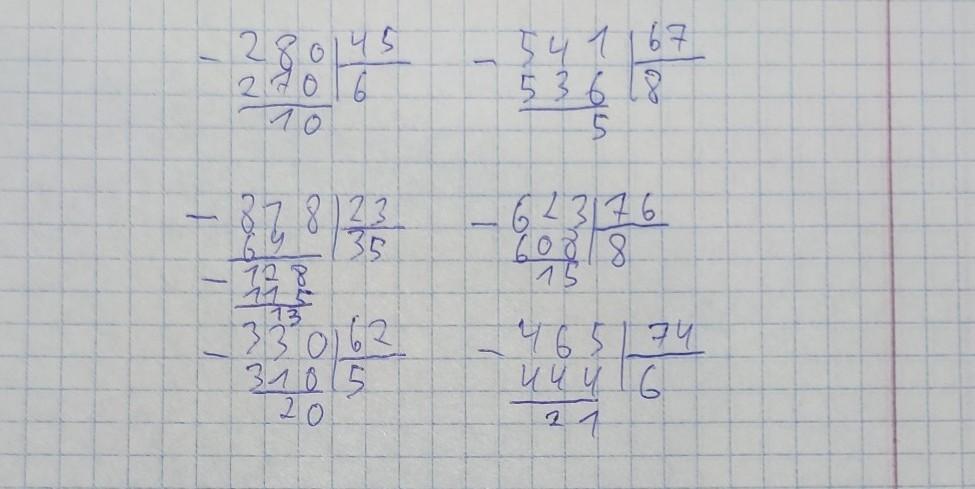 - 280 | 45 - 541 | 67
270 | 6 536 | 8
10 5
- 818 | 23 - 623 | 76
69 35 608 | 8
- 128 15
115
13
- 330 | 62 - 465 | 74
310 | 5 444 | 6
20 21